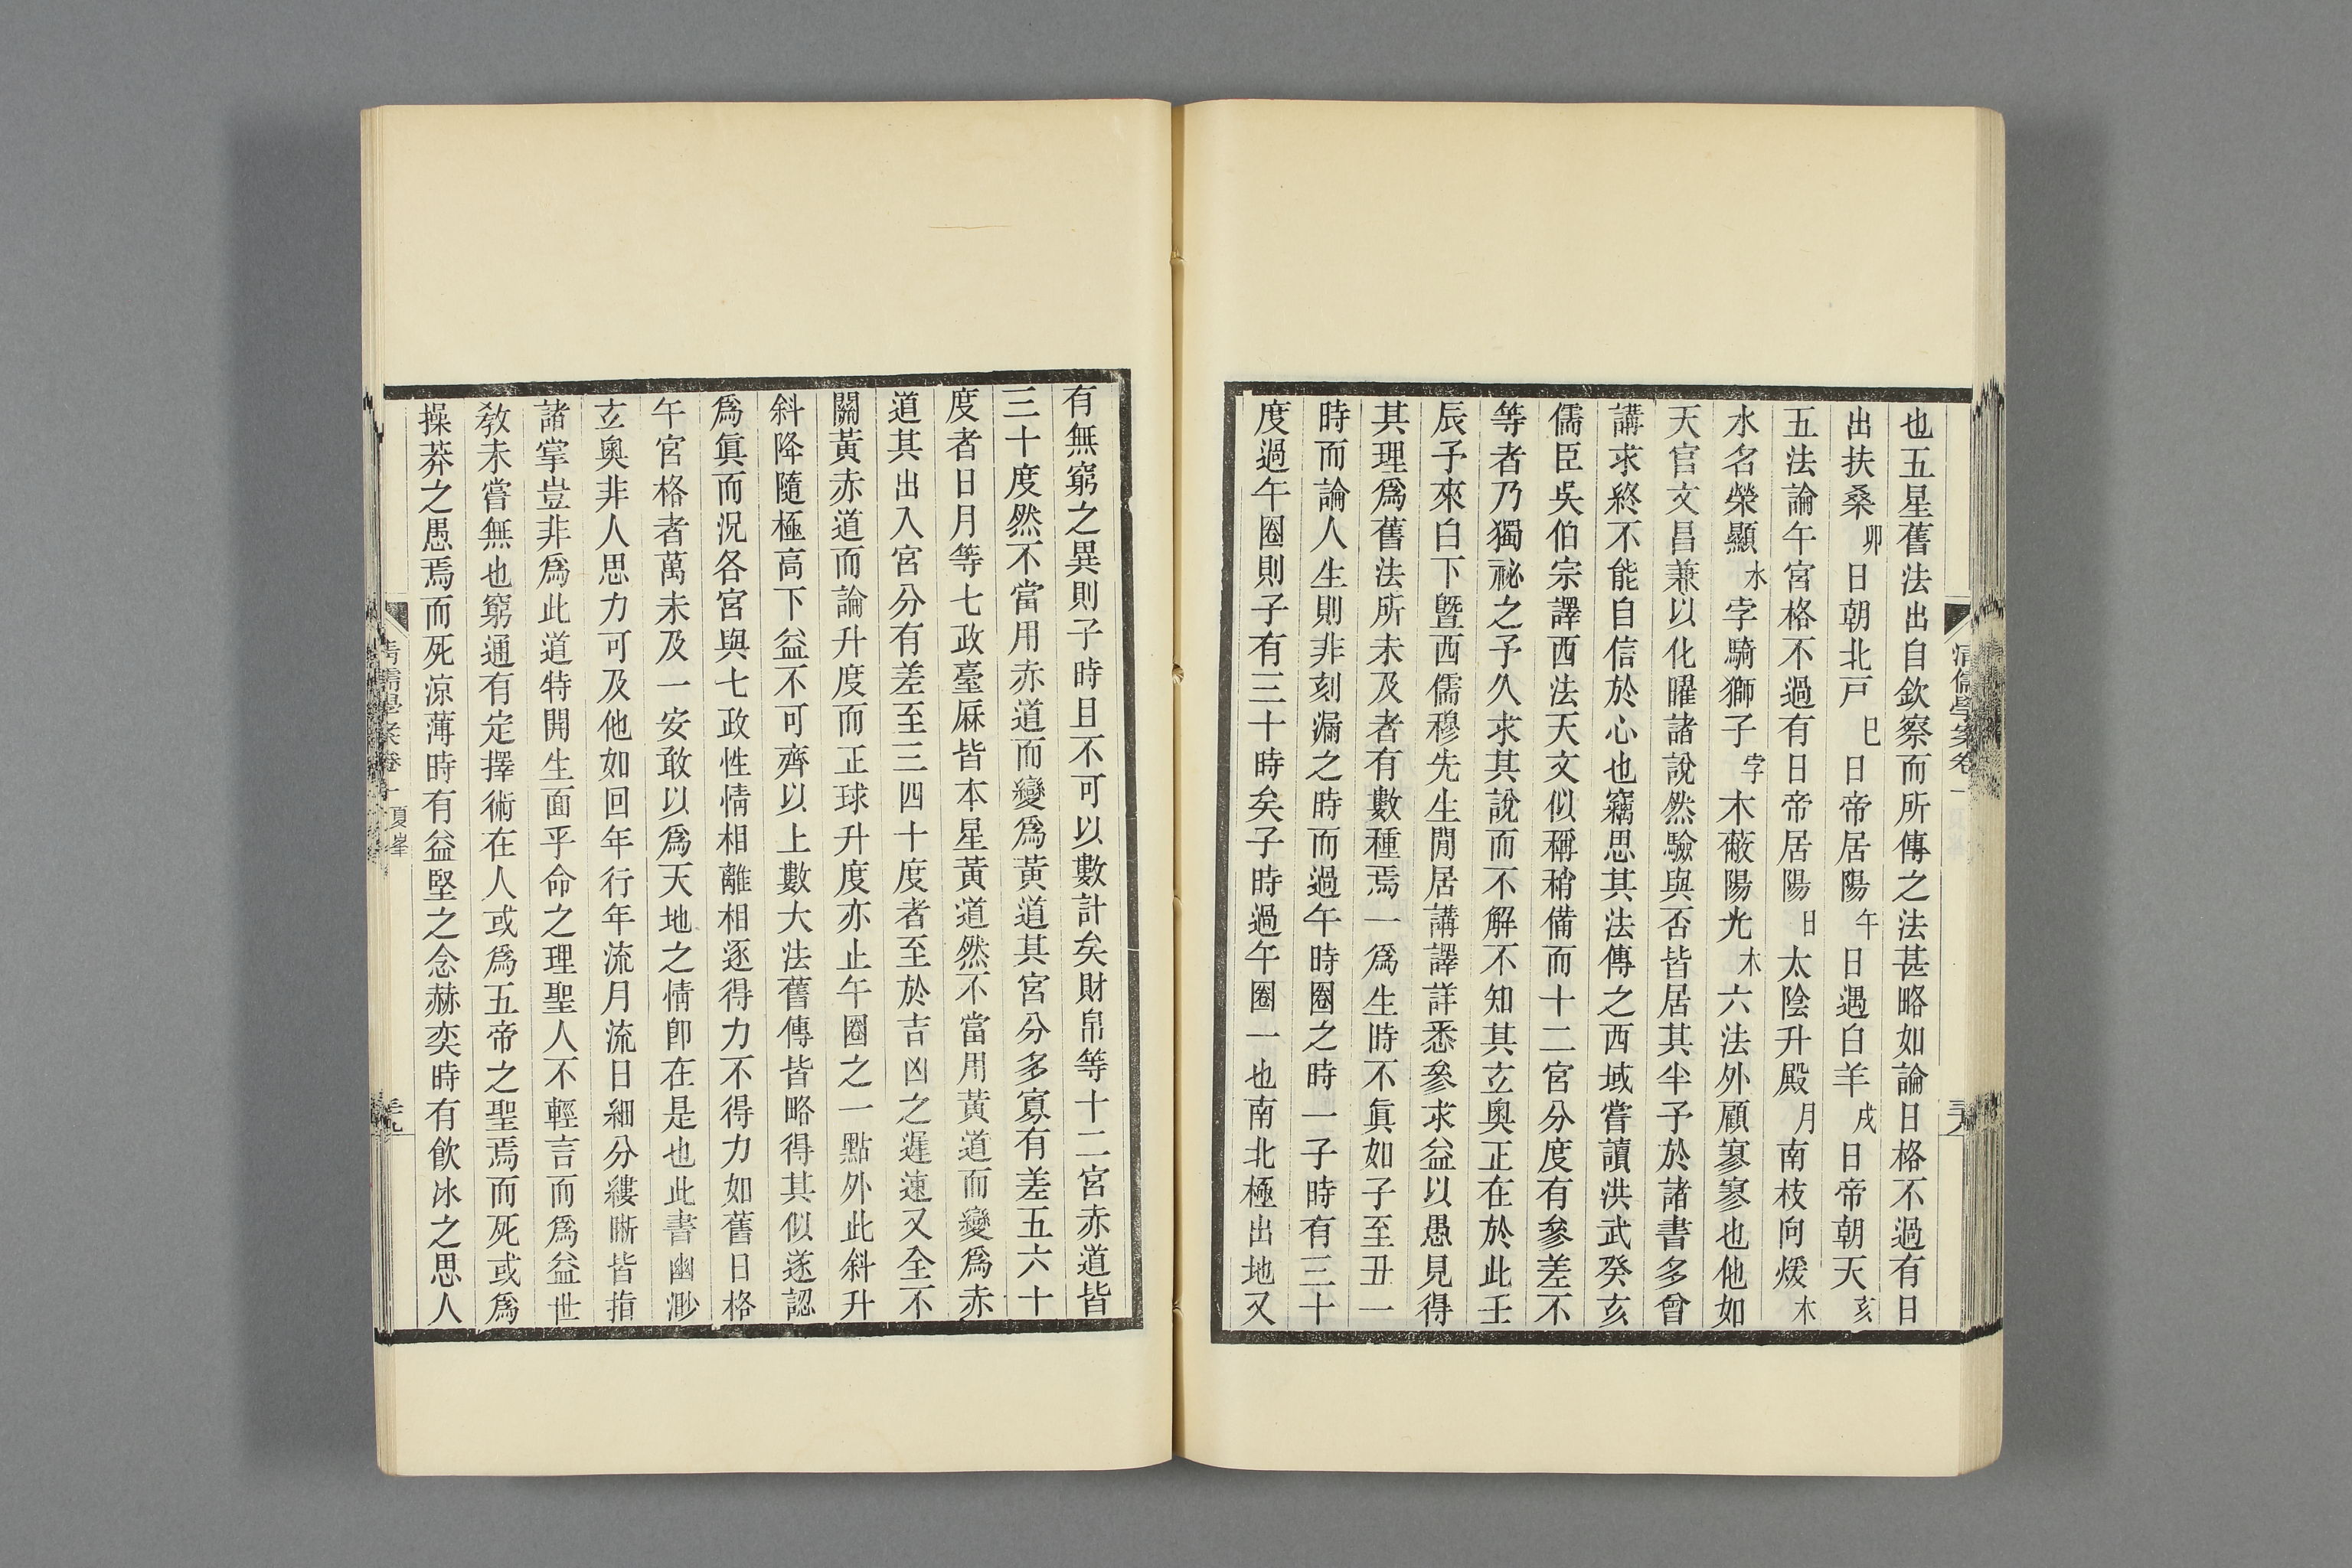 也五星舊法出自欽察而所傳之法甚略如論日格不過有日
出扶桑卯日朝北戸巳日帝居陽午日遇白羊戌日帝朝天亥
五法論午宮格不過有日帝居陽日太陰升殿月南枝向煖木
水名榮顯水孛騎獅子孛木蔽陽光木六法外顧寥寥也他如
天官文昌兼以化曜諸說然驗與否皆居其半予於諸書多曾
講求終不能自信於心也竊思其法傳之西域嘗讀洪武癸亥
儒臣吳伯宗譯西法天文似稱稍備而十二宮分度有參差不
等者乃獨祕之予久求其說而不解不知其玄奧正在於此壬
辰予來白下曁西儒穆先生閒居講譯詳悉參求益以愚見得
其理爲舊法所未及者有數種焉一爲生時不眞如子至丑一
時而論人生則非刻漏之時而過午時圈之時一子時有三十
度過午圈則子有三十時矣子時過午圈一也南北極出地又
有無窮之異則子時且不可以數計矣財帛等十二宮赤道皆
三十度然不當用赤道而變爲黃道其宮分多寡有差五六十
度者日月等七政臺厤皆本星黃道然不當用黃道而變爲赤
道其出入宮分有差至三四十度者至於吉凶之遲速又全不
關黃赤道而論升度而正球升度亦止午圈之一點外此斜升
斜降隨極高下益不可齊以上數大法舊傳皆略得其似遂認
爲眞而況各宮與七政性情相離相逐得力不得力如舊日格
午宮格者萬未及一安敢以爲天地之情卽在是也此書幽渺
玄奧非人思力可及他如回年行年流月流日細分縷晰皆指
諸掌豈非爲此道特開生面乎命之理聖人不輕言而爲益世
敎未嘗無也窮通有定擇術在人或爲五帝之聖焉而死或爲
操莽之愚焉而死涼薄時有益堅之念赫奕時有飮冰之思人
清儒學案卷一
夏峯
三九